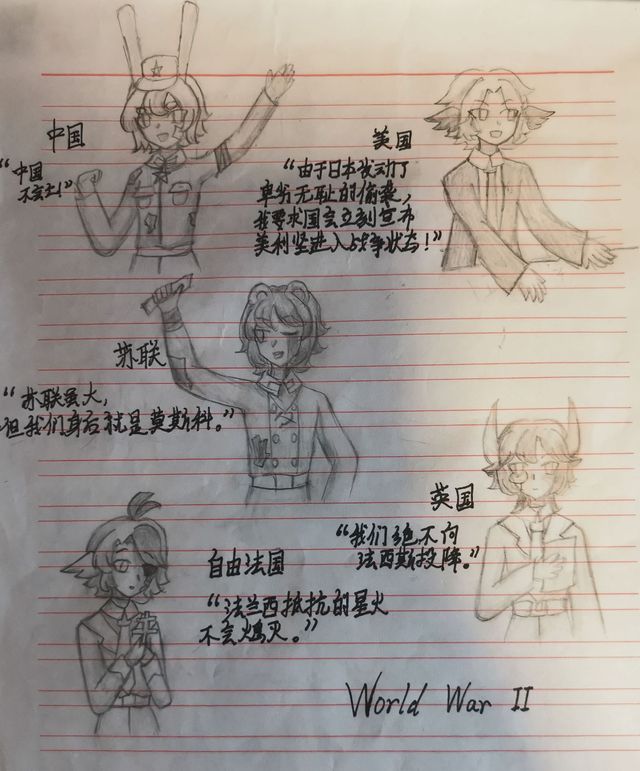 中国
“中国
不会亡!”
美国
“由于日本发动了
卑劣无耻的偷袭,
我要求国会立刻宣布
美利坚进入战争状态!”
苏联
“苏联虽大,
但我们身后就是莫斯科。”
英国
“我们绝不向
法西斯投降。”
自由法国
“法兰西抵抗的星火
不会熄灭。”
World War II